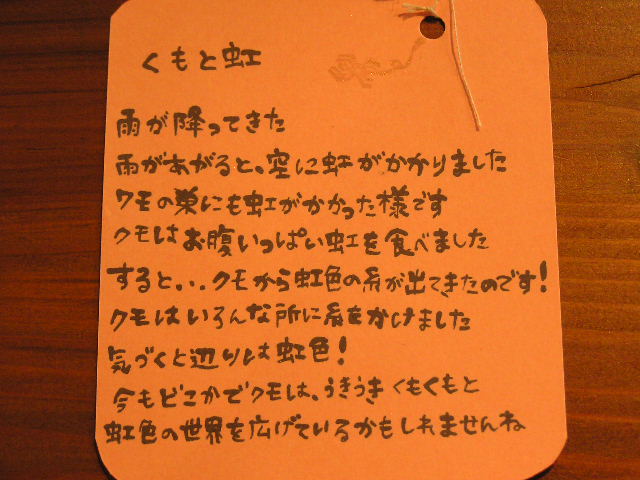 くもと虹
雨が降ってきた
雨があがると、空に虹がかかりました
クモの巣にも虹がかかった様です
クモはお腹いっぱい虹を食べました
すると、、、クモから虹色の糸が出てきたのです!
クモはいろんな所に糸をかけました
気づくと辺りは虹色!
今もどこかでクモは、うきうきくもくもと
虹色の世界を広げているかもしれませんね